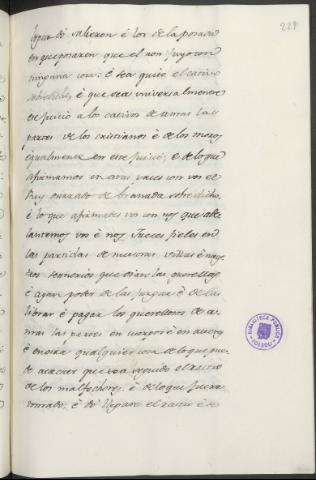 229
logar dó salieren é los de la posada
en que posaren que él non fuyó con
ninguna cosa: é sea quito el cativo
sobredicho, é que sea universalmente
este juicio a los cativos de amas las
partes de los cristianos é de los moros
egualmente en este juicio; é de lo que
afirmamos en estas paces con vos el
Rey onrado de Granada sobredicho,
é lo que afirmades vos con nos que ade
lantemos vos é nos Jueces fieles en
las partidas de nuestras villas é nues
tros sennorios que oian las querellas
é ayan poder de las juzgar é de las
librar é pagar los querellosos de a
mas las partes en cuerpo é en aver
é en otra qualquier cosa de lo que pue
da acaecer que sea seguido el rastro
de los malfechores, é de lo que fuere
tomado; é dó llegare el rastro é se
BIBLIOTECA PÚBLICA
TOLEDO